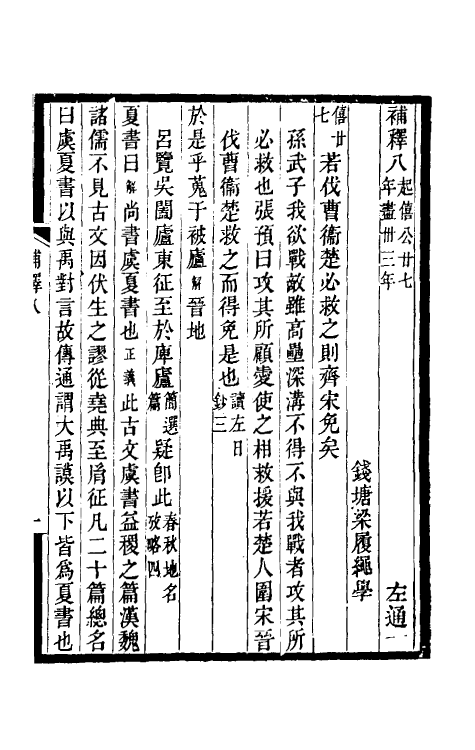 補釋八起僖公廿七年盡卅三年 左通一
錢塘梁履繩學
僖廿七若伐曹衞楚必救之則齊宋免矣
孫武子我欲戰敵雖高壘深溝不得不與我戰者攻其所
必救也張預曰攻其所顧愛使之相救援若楚人圍宋晉
伐曹衞楚救之而得免是也讀左日鈔三
於是乎蒐于被廬解晉地
呂覽吳闔廬東征至於庳廬簡選篇疑卽此春秋地名攷略四
夏書曰解尚書虞夏書也正義此古文虞書益稷之篇漢魏
諸儒不見古文因伏生之謬從堯典至𦙍征凡二十篇總名
曰虞夏書以與禹對言故傳通謂大禹謨以下皆爲夏書也
補釋八
一